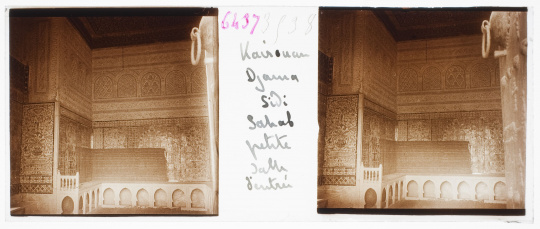 6437 3538
Kairouan
Djama
Sidi
Sahab
petite
Salle
d'entrée